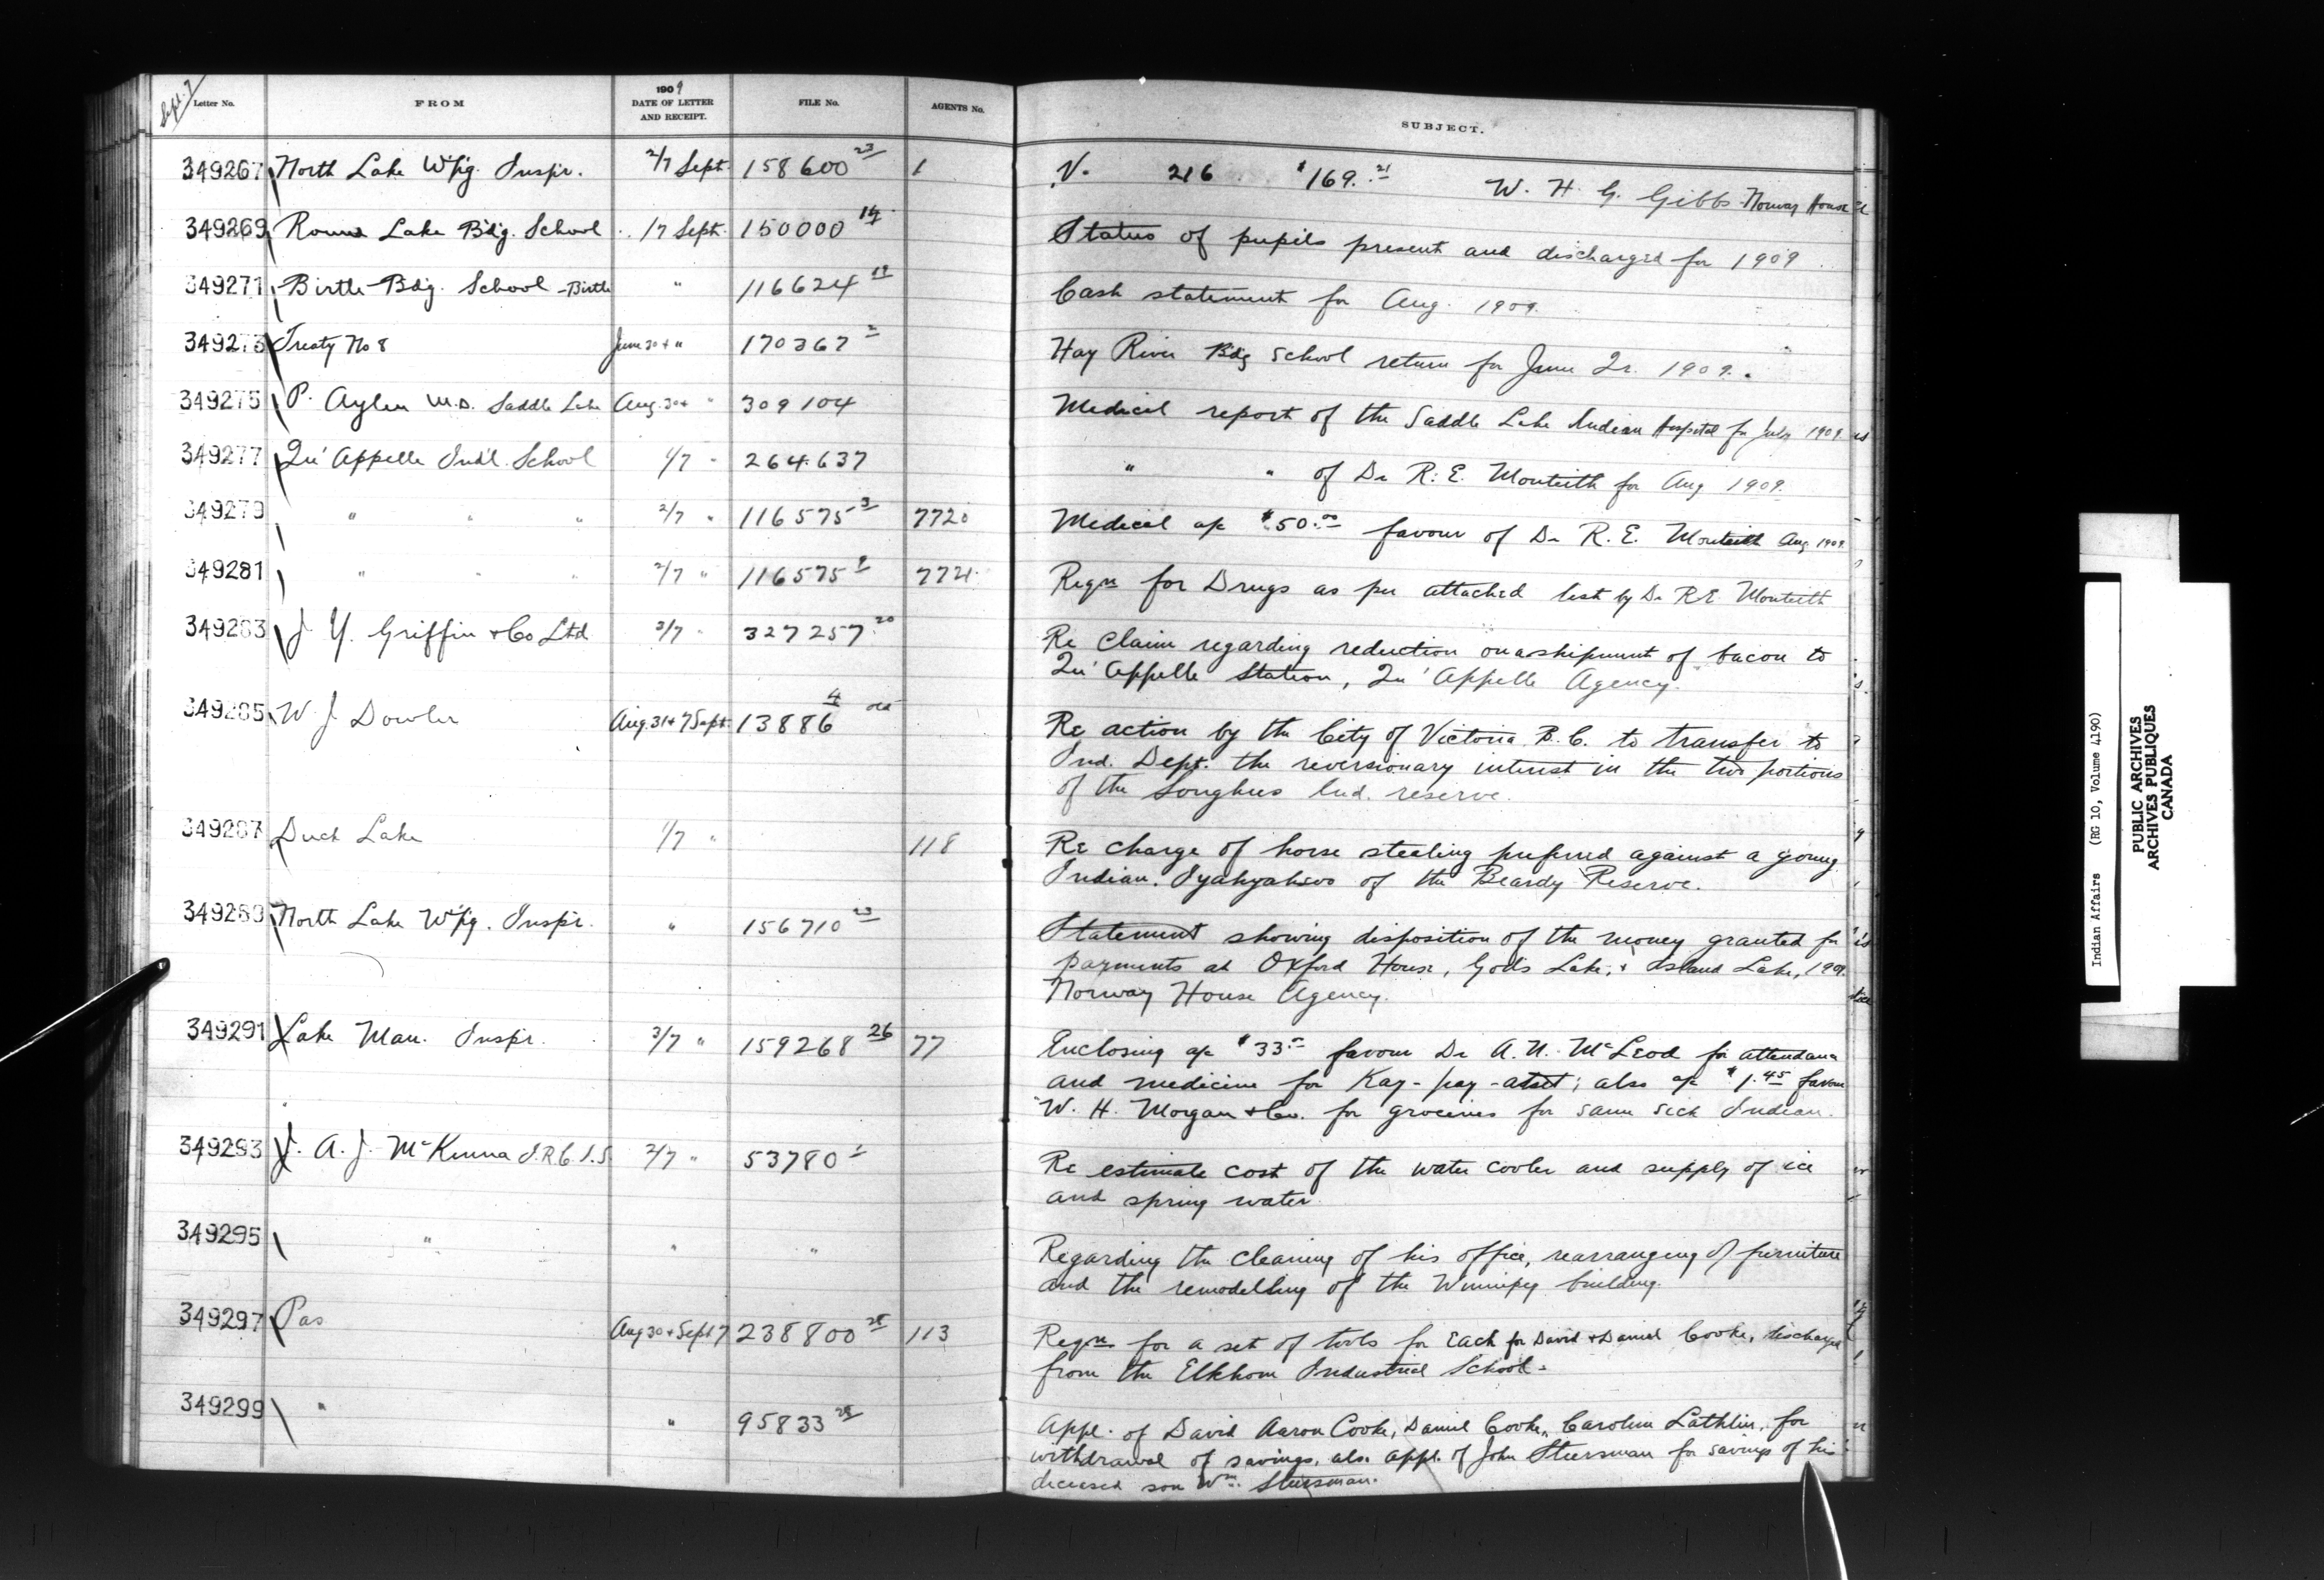 Sept. 7
Letter No. FROM 1909 DATE OF LETTER AND RECEIPT. FILE No. AGENTS No. SUBJECT.
349267 North Lake W'pg. Inspr. 2/7 Sept. 158600 23 1 V. 216 $169.21 W. H. G. Gibbs Norway House
349269 Round Lake Bdg. School 1/7 Sept. 150000 14 Status of pupils present and discharged for 1909
349271 Birtle Bdg. School - Birtle " 116624 19 Cash statement for Aug. 1909.
349273 Treaty No 8 June 30 + " 170367 2 Hay River Bdg School return for June Qr. 1909.
349275 P. Aylen M.D. Saddle Lake Aug. 30 + " 309104 Medical report of the Saddle Lake Indian Hospital for July 1909.
349277 Qu'Appelle Ind'l. School 1/7 " 264.637 " " of Dr R. E. Monteith for Aug 1909.
349279 " " " 2/7 " 116575 3 7720 Medical a/c $50.00 favour of Dr R. E. Monteith Aug 1909.
349281 " " " 2/7 " 116575 9 7721 Reqn for Drugs as per attached list by Dr R E Monteith
349283 J Y. Griffin + Co Ltd 3/7 " 327257 20 Re claim regarding reduction on a shipment of bacon to
Qu'Appelle Station, Qu'Appelle Agency.
349285 W J Dowler Aug. 31 + 7 Sept. 13886 4 old Re action by the City of Victoria B. C. to transfer to
Ind. Dept. the reversionary interest in the two portions
of the Songhees Ind. reserve.
349287 Duck Lake 1/7 " 118 Re charge of horse stealing preferred against a young
Indian. of the Beardy Reserve.
349289 North Lake W'pg. Inspr. " 156710 23 Statement showing disposition of the money granted for
payments at Oxford House, Gods Lake, + Island Lake, 1909.
Norway House Agency.
349291 Lake Man. Inspr. 3/7 " 159268 26 77 Enclosing a/c $33.00 favour Dr A. N. McLeod for attendance
and medicine for Kay-pay-; also a/c $1.45 favour
W. H. Morgan + Co. for groceries for same sick Indian.
349293 J. A. J. McKenna I.R.C.I.S. 2/7 " 53780 1 Re estimate cost of the water cooler and supply of ice
and spring water.
349295 " " " Regarding the cleaning of his office, rearranging of furniture
and the remodelling of the Winnipeg building.
349297 Pas Aug 30 + Sept 7 238800 28 113 Reqn for a set of tools for each for David + Daniel Cooke, discharged
from the Elkhorn Industrial School.
349299 " " 95833 28 Appl. of David Aaron Cooke, Daniel Cooke, Caroline Lathlin, for
withdrawal of savings, also appl. of John Steersman for savings of his
deceased son Wm. Steersman.
Indian Affairs (RG 10, Volume 4190)
PUBLIC ARCHIVES
ARCHIVES PUBLIQUES
CANADA